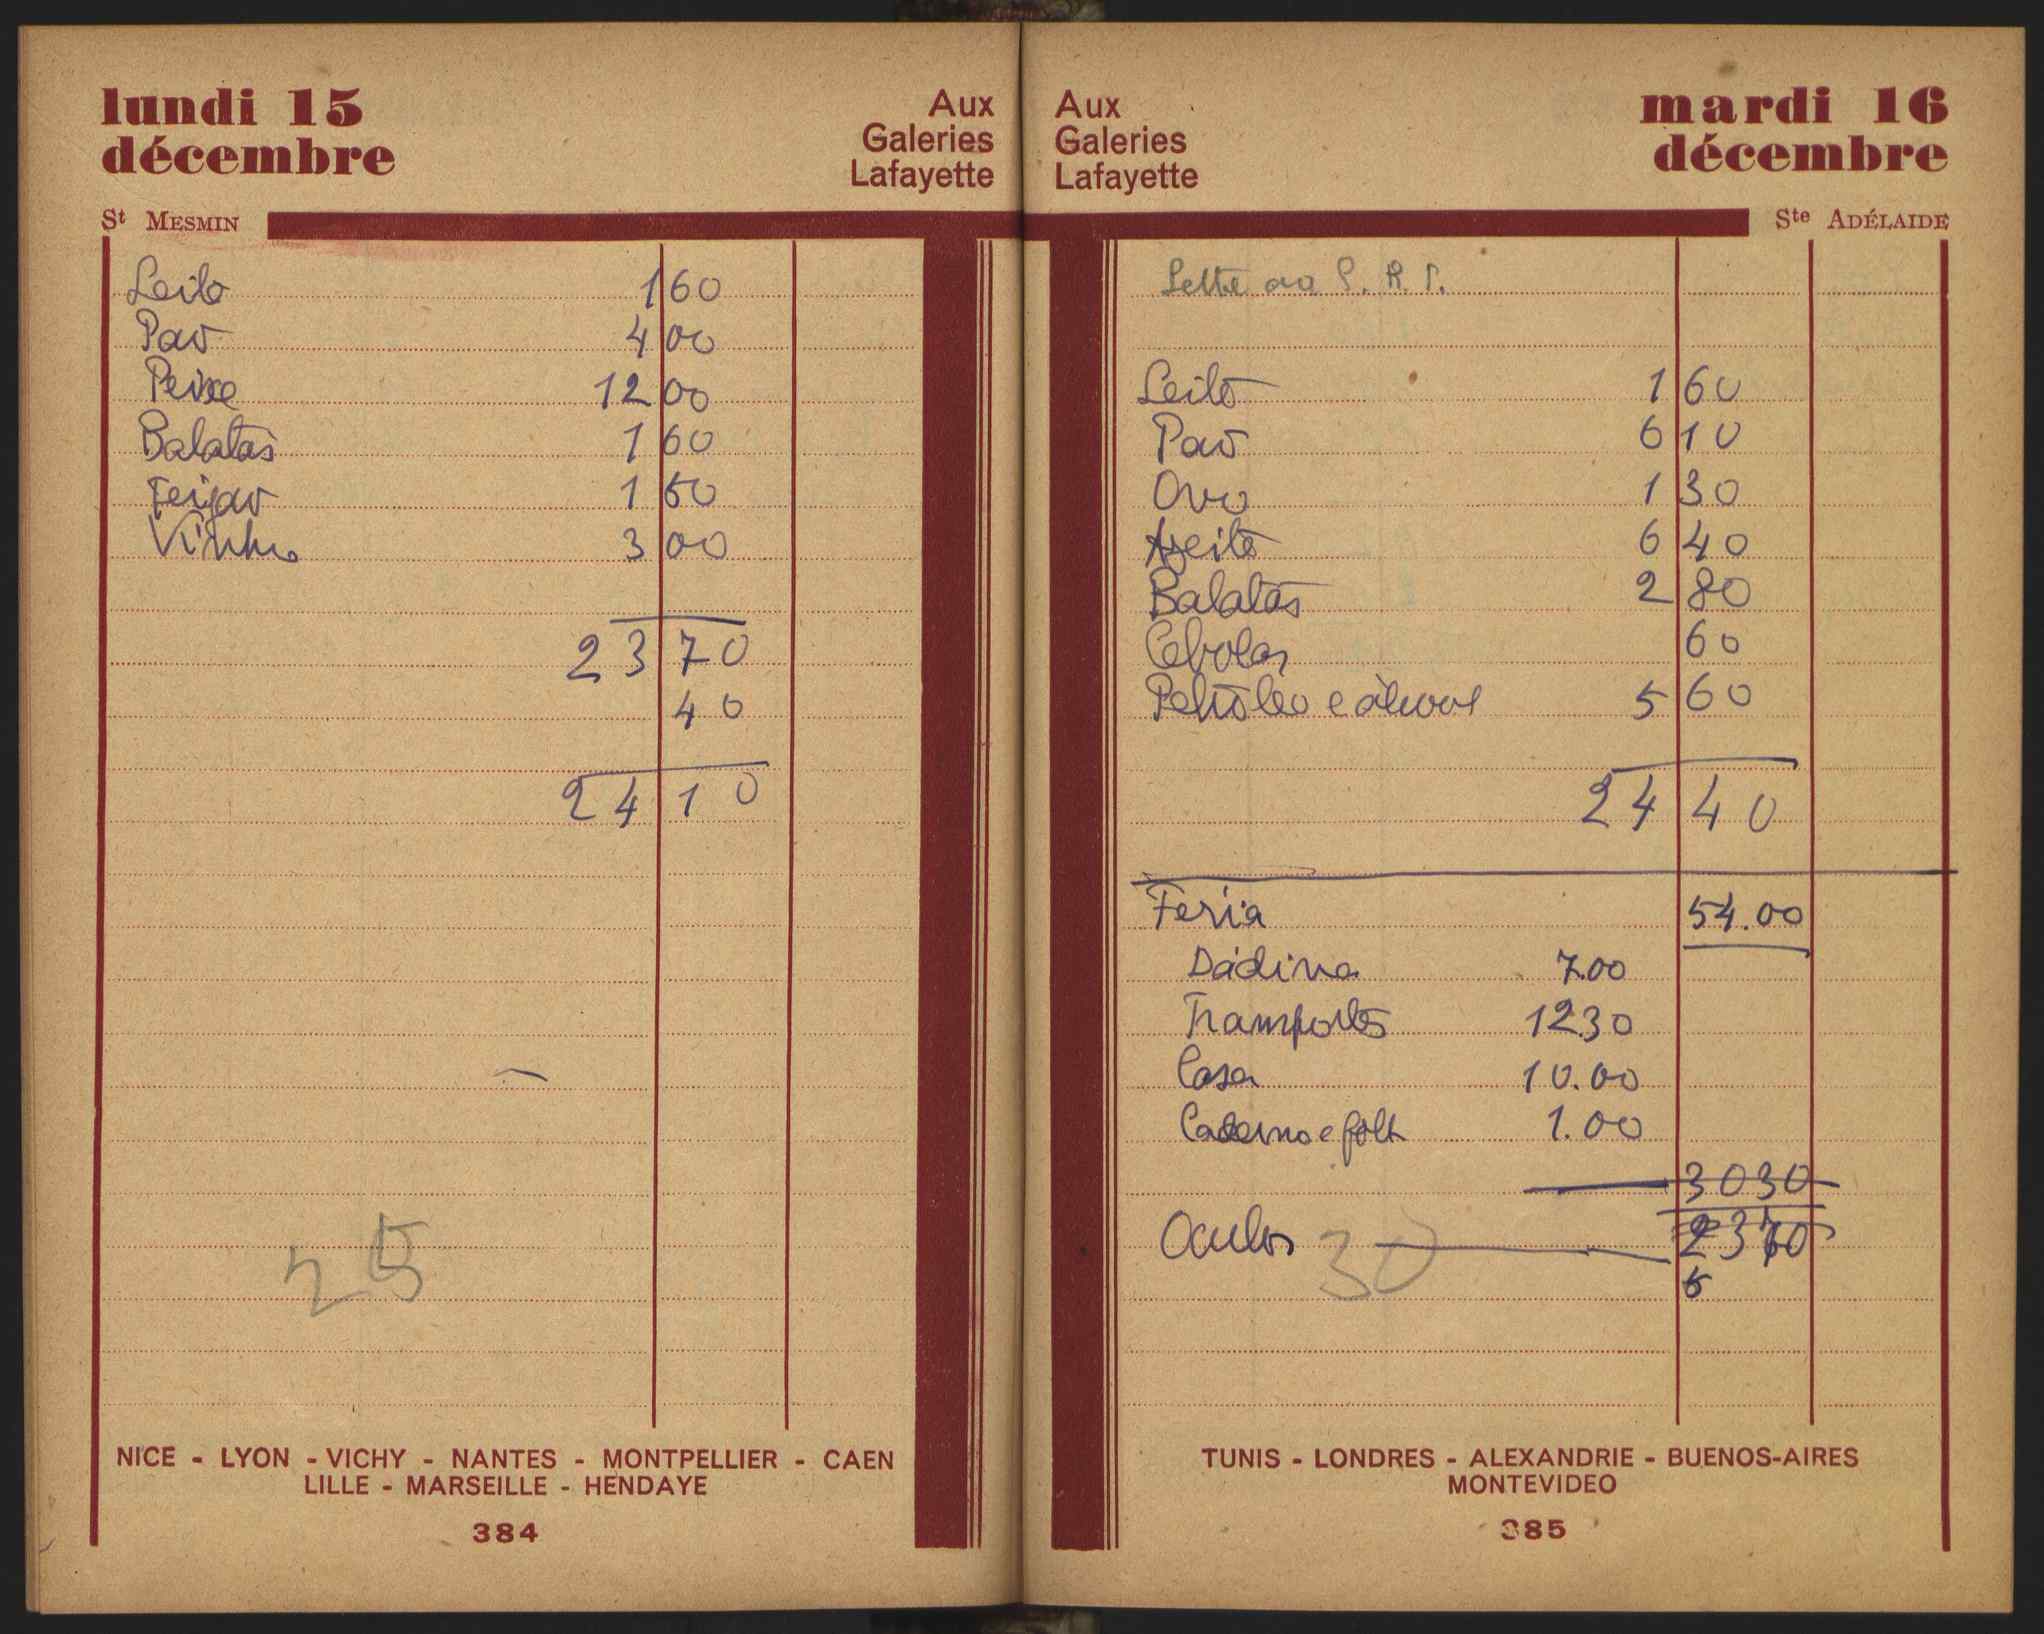 lundi 15
décembre
Aux
Galeries
Lafayette
St MESMIN
Leite 1 60
Pao 4 00
Peixe 12 00
Batatas 1 60
Feijao 1 50
Vinho 3 00
23 70
40
24 10
25
NICE - LYON - VICHY - NANTES - MONTPELLIER - CAEN
LILLE - MARSEILLE - HENDAYE
384
Aux
Galeries
Lafayette
mardi 16
décembre
Ste ADÉLAIDE
Lettre
Leite 1 60
Pao 6 10
Ovo 1 30
Azeite 6 40
Batatas 2 80
Cebolas 60
Petróleo e álcool 5 60
24 40
Feria 54.00
Dádiva 7.00
Transportes 12.30
Casa 10.00
Caderno e 1.00
3030
Oculos 30
TUNIS - LONDRES - ALEXANDRIE - BUENOS-AIRES
MONTEVIDEO
385